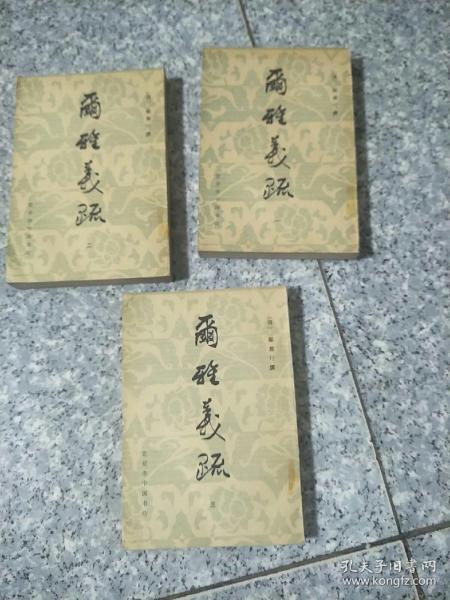 爾雅義疏
二
爾雅義疏
一
〔清〕郝懿行撰
爾雅義疏
三
北京市中国书店
孔夫子旧书网
www.kongfz.com